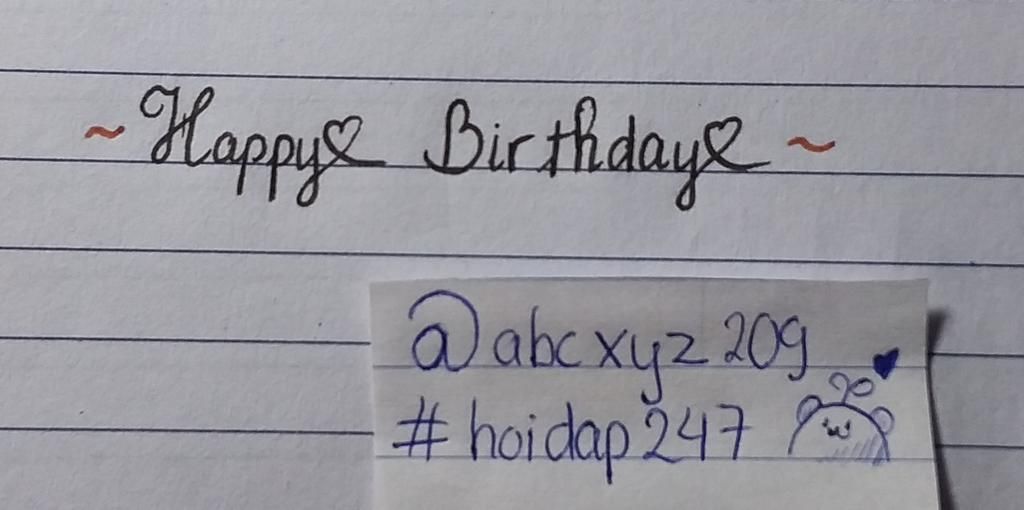 ~ Happy♡ Birthday♡ ~
@abcxyz209
#hoidap247